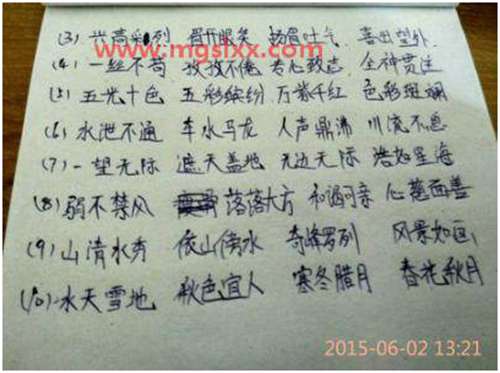 (3) 兴高采列 眉开眼笑 扬眉吐气 喜出望外
www.mgslxx.com
(4) 一丝不苟 孜孜不倦 专心致志 全神贯注
(5) 五光十色 五彩缤纷 万紫千红 色彩斑斓
(6) 水泄不通 车水马龙 人声鼎沸 川流不息
(7) 一望无际 遮天盖地 无边无际 浩如星海
(8) 弱不禁风 落落大方 和谒可亲 心慈面善
(9) 山清水秀 依山傍水 奇峰罗列 风景如画
(10) 水天雪地 秋色宜人 寒冬腊月 春花秋月
2015-06-02 13:21